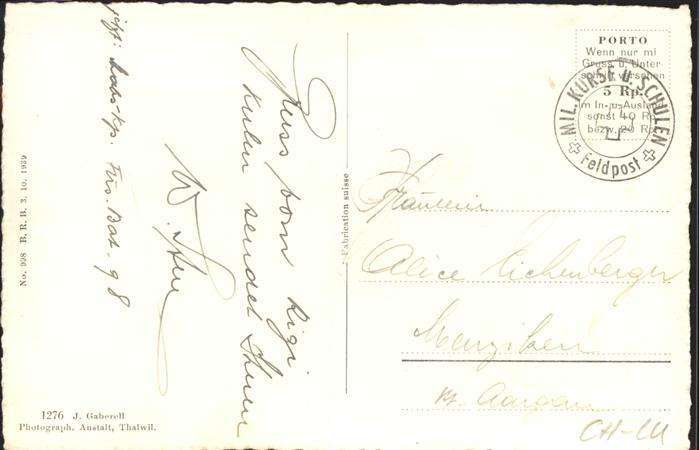 Gruss vom Rigi
Kulm sendet Ihnen
W.
Füs. Bat. 98
No. 998 B. R. B. 3. 10. 1939
1276 J. Gaberell
Photograph. Anstalt, Thalwil.
Fabrication suisse
PORTO
Wenn nur mi
Gruss u. Unter-
schrift versehen
5 Rp.
m In- u. Ausland
sonst 10 Rp.
bezw. 20 Rp.
MIL. KURSE U. SCHULEN
Feldpost
Fräulein
Alice Eichenberger
Menziken
Kt. Aargau
CH-